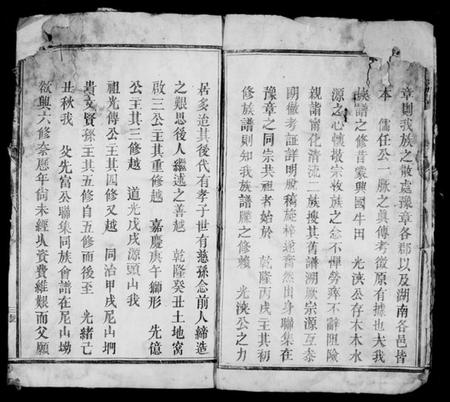 章則我族之散處豫章各郡以及湖南各邑皆
本 儒任公一脈之真傳考徵原有據也夫我
族譜之修昔蒙興國牛田 光浹公存木本水
源之心懷敬宗收族之念不憚勞瘁不辭阻險
親詣甯化清流二族搜其舊譜溯厥宗源互叅
明徹考証詳明脫稿旋梓遂奮然出身聯集在
豫章之同宗共祖者始於 乾隆丙戌主其初
修族譜則知我族譜牒之修賴 光浹公之力
居多迨其後代有孝子世有慈孫念前人締造
之艱思後人繼述之善越 乾隆癸丑土地窩
啟三公主其重修越 嘉慶庚午獅形 先億
公主其三修越 道光戊戌源頭山我
祖光傳公主其四修又越 同治甲戌尼山坰
貴文賢孫主其五修自五修而後至 光緒己
丑秋我 父先富公聯集同族會譜在尼山坳
欲興六修奈歷年尙未經乆資費維艱而父願